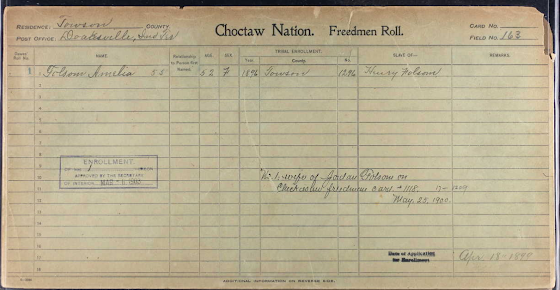 RESIDENCE: Towson COUNTY.
POST OFFICE: Doaksville, Ind Ter
Choctaw Nation. Freedmen Roll.
CARD NO.
FIELD NO. 163
NAME.
Relationship to Person first Named.
AGE.
SEX.
TRIBAL ENROLLMENT.
Year.
County.
No.
SLAVE OF—
REMARKS.
1 Folsom Amelia 55 52 F 1896 Towson Henry Folsom
ENROLLMENT
APPROVED BY THE SECRETARY
OF INTERIOR
No 1, wife of Jordan Folsom on
Chickasaw freedmen card #1118
May 23, 1900.
Date of Application
for Enrollment
Apr. 18-1899
ADDITIONAL INFORMATION ON REVERSE SIDE.